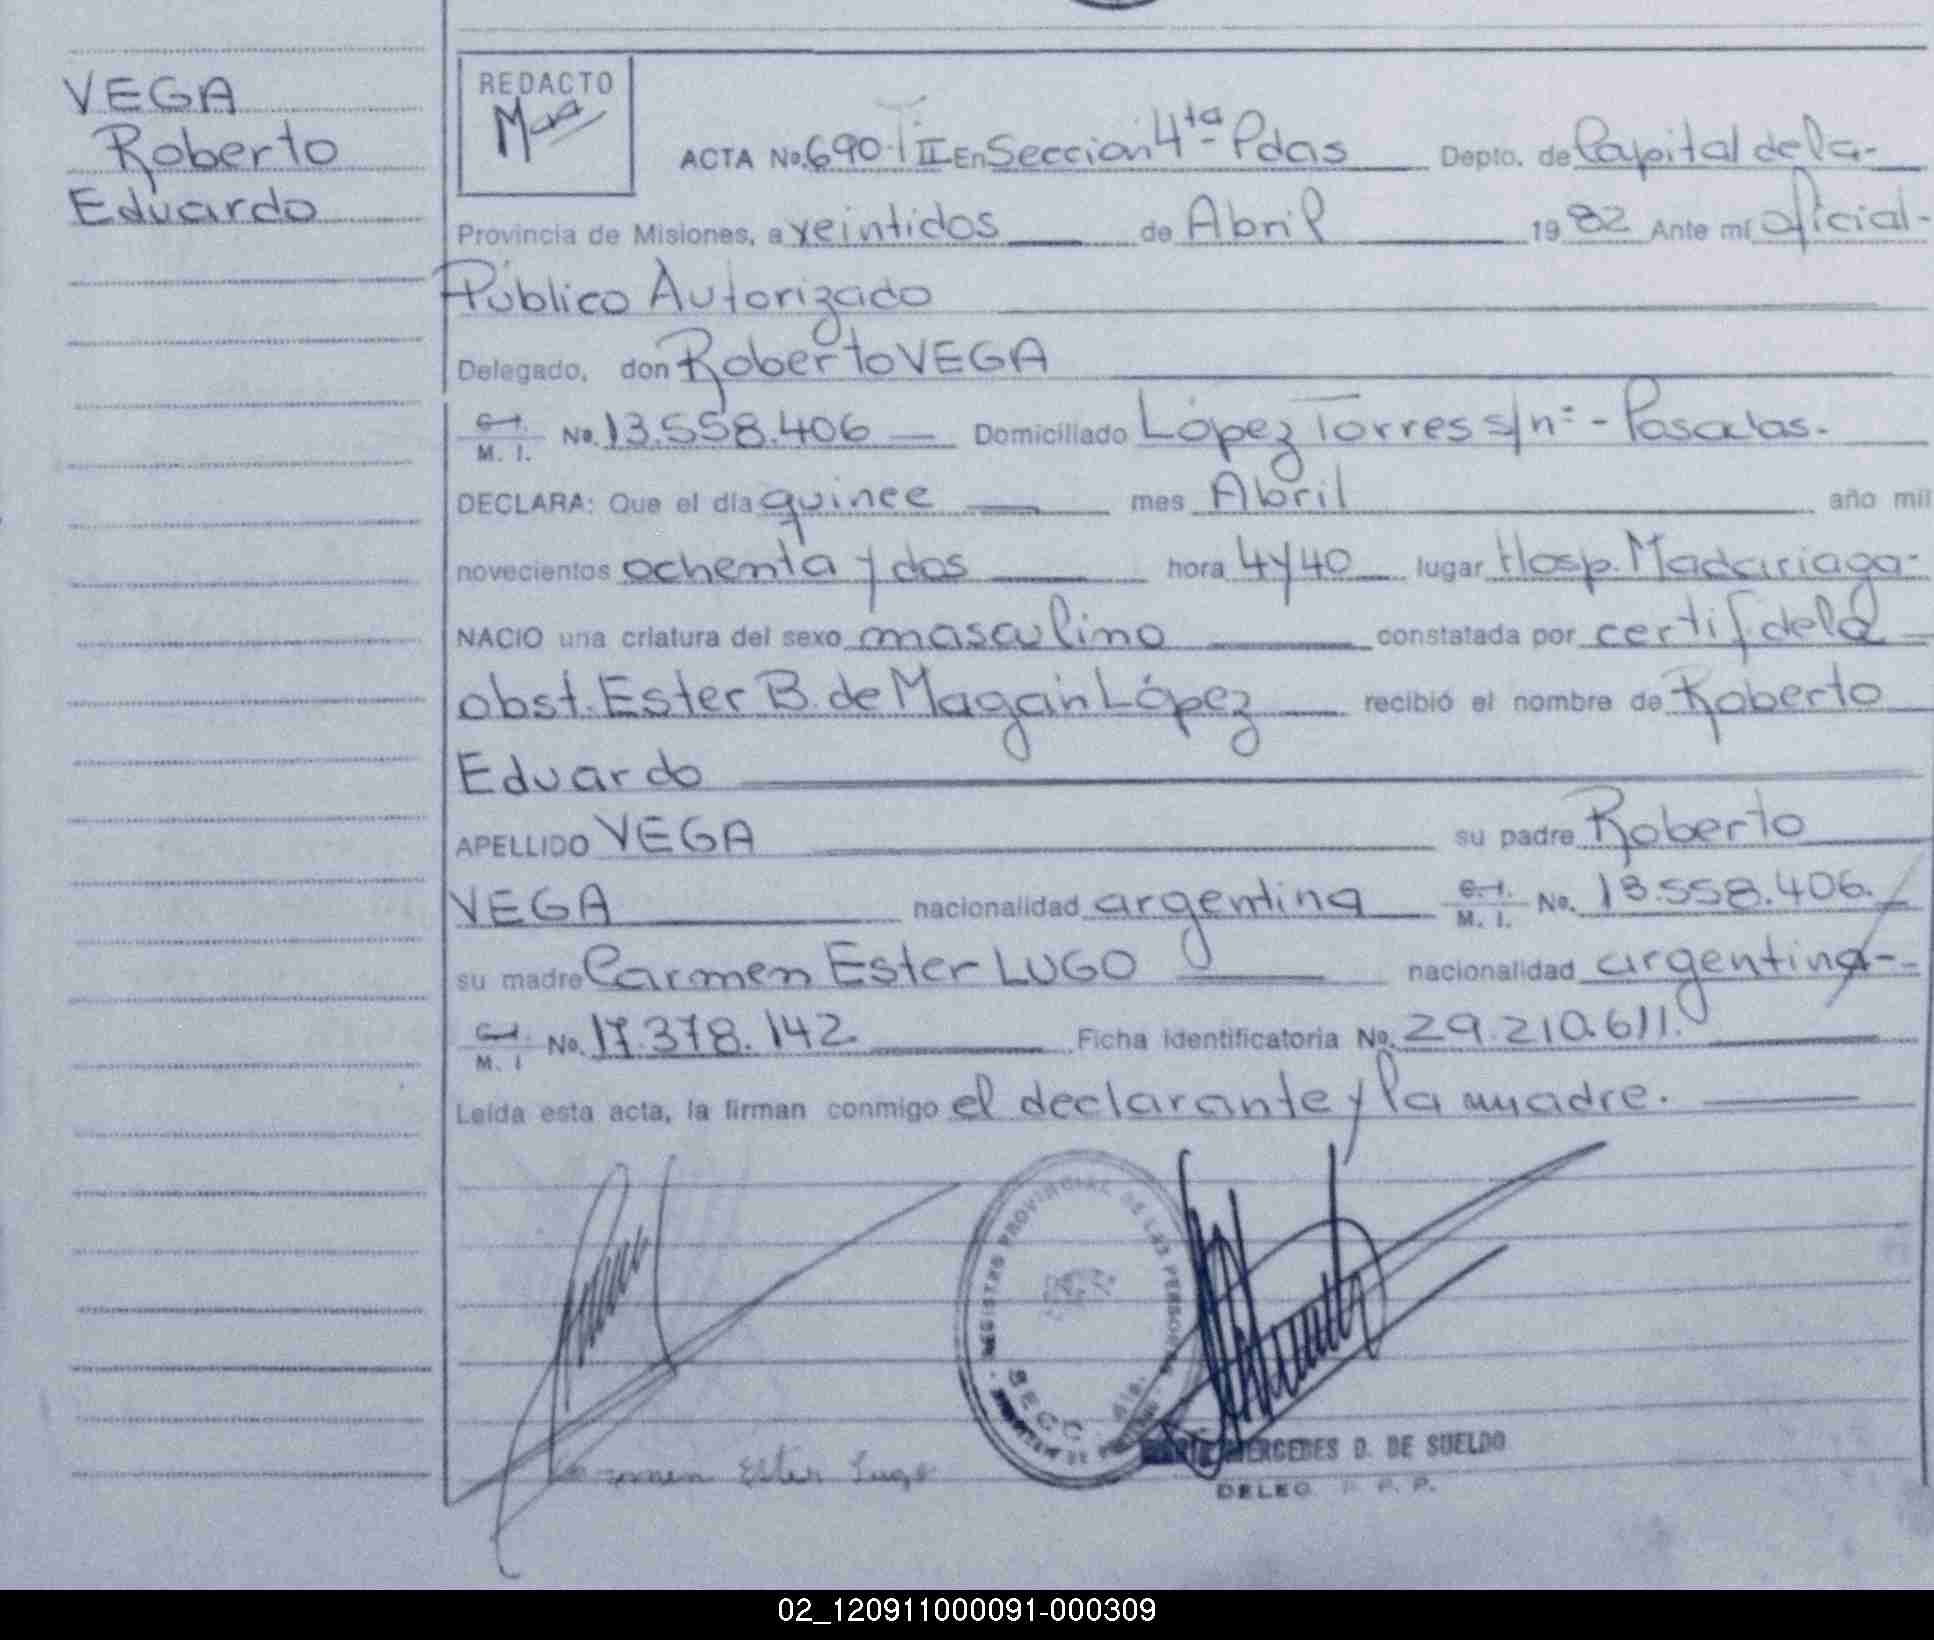 VEGA
Roberto
Eduardo
REDACTO
ACTA No. 690-T II En Sección 4ta Pdas Depto. de Capital de la-
Provincia de Misiones, a veintidos de Abril 1982 Ante mí oficial-
Público Autorizado
Delegado, don Roberto VEGA
C. I. M. I. No. 13.558.406 Domiciliado López Torres s/nº - Posadas.
DECLARA: Que el día quince mes Abril año mil
novecientos ochenta y dos hora 4 y 40 lugar Hosp. Madariaga-
NACIO una criatura del sexo masculino constatada por certif. de la
obst. Ester B. de Magan López recibió el nombre de Roberto
Eduardo
APELLIDO VEGA su padre Roberto
VEGA nacionalidad argentina C. I. M. I. No. 13.558.406.
su madre Carmen Ester LUGO nacionalidad argentina-
C. I. M. I No. 17.378.142. Ficha identificatoria No. 29.210.611.
Leída esta acta, la firman conmigo el declarante y la madre.
REGISTRO PROVINCIAL DE LAS PERSONAS
SECC. 4ta.
Carmen Ester Lugo
MERCEDES D. DE SUELDO
DELEG. R. P. P.
02_120911000091-000309